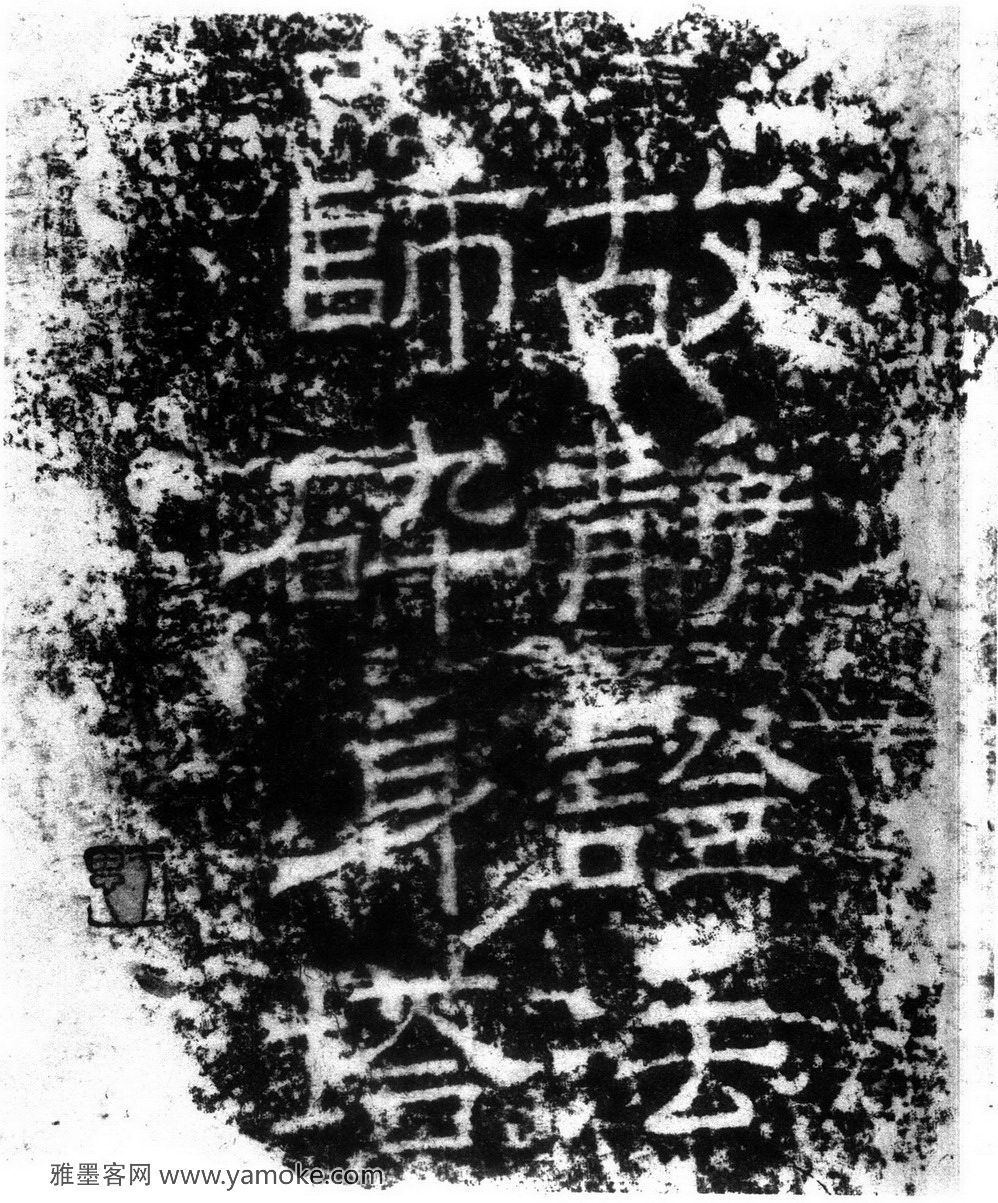 故靜證法
師碎身塔
雅墨客网 www.yamoke.com